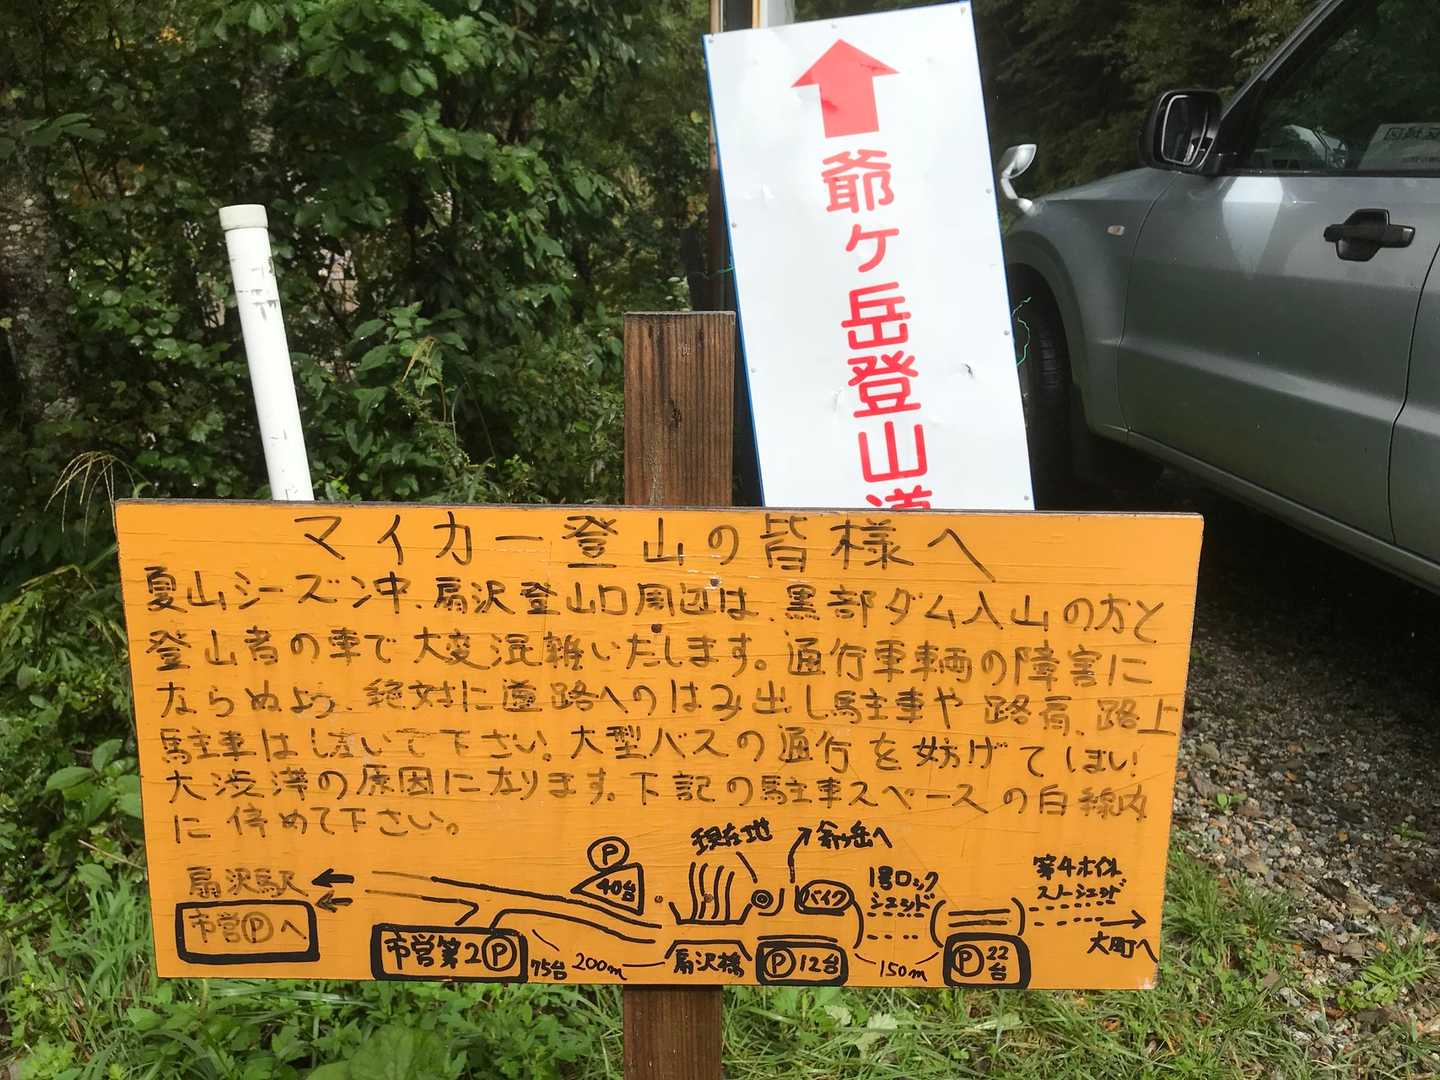 爺ケ岳登山道
マイカー登山の皆様へ
夏山シーズン中、扇沢登山口周辺は、黒部ダム入山の方と
登山者の車で大変混雑いたします。通行車輌の障害に
ならぬよう、絶対に道路へのはみ出し駐車や路肩、路上
駐車はしないで下さい。大型バスの通行を妨げてしまい
大渋滞の原因になります。下記の駐車スペースの白線内
に停めて下さい。
現在地
爺ヶ岳へ
扇沢駅
市営Ⓟへ
市営第2Ⓟ
75台
200m
Ⓟ
40台
扇沢橋
バイク
Ⓟ12台
1号ロック
シェッド
150m
Ⓟ22台
第4ホイル
スノーシェッド
大町へ